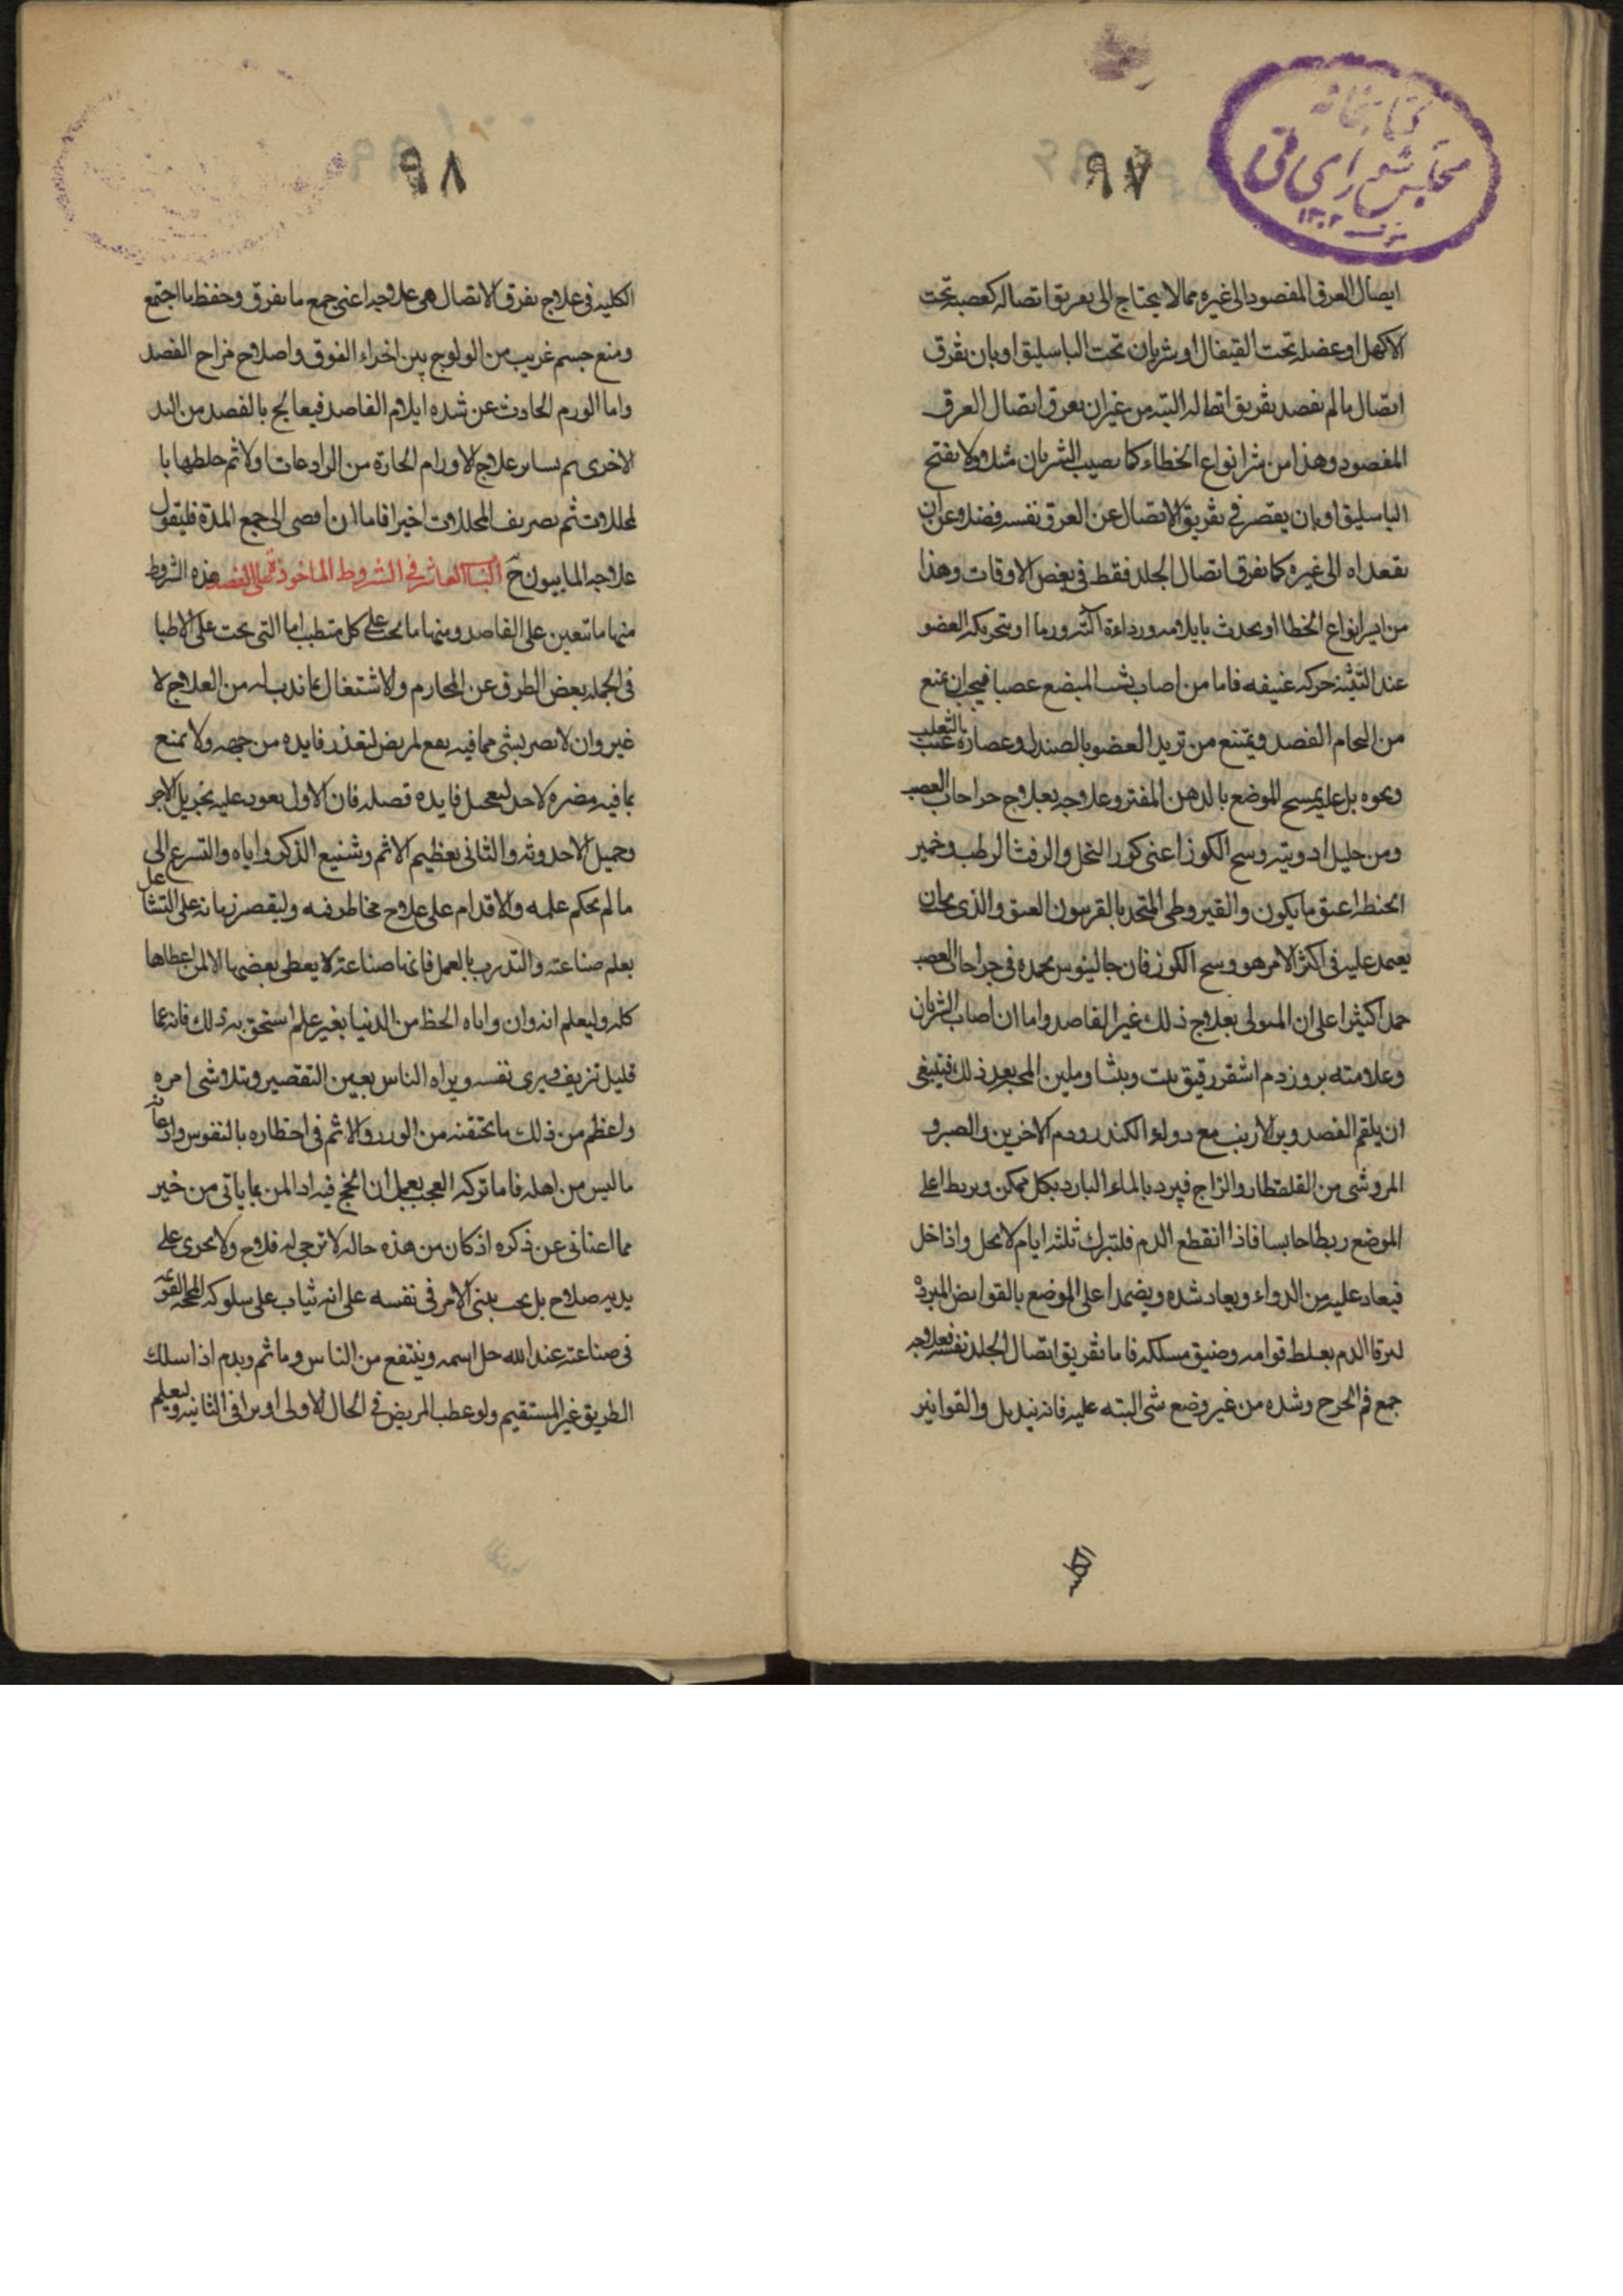 كتابخانه
مجلس شورای ملی
۱۳۰۲
٩٧
ايصال العرق المفصود الى غيره مما لا يحتاج الى تفريق اتصاله كعصبه تحت
الاكحل او عضله تحت القيفال او شريان تحت الباسليق او بان يفرق
اتصال ما لم يقصد تفريق اتصاله البته من غير ان يفرق اتصال العرق
المقصود وهذا من شر انواع الخطاء كما يصيب الشريان مثلا ولا يفتح
الباسليق او بان يقصر في تفريق الاتصال عن العرق نفسه فضلا وعن ان
يتعداه الى غيره كما يفرق اتصال الجلد فقط في بعض الاوقات وهذا
من ايسر انواع الخطا او يحدث بايلامه ورداءة آلته ورما او بتحريكه العضو
عند التثنيه حركه عنيفه فاما من اصاب بشب المبضع عصبا فيجب ان يمنع
من الحام الفصد ويمتنع من تبريد العضو بالصندل وعصارة عنب الثعلب
ونحوه بل عليه يمسح الموضع بالدهن المفتر وعلاجه بعلاج جراحات العصب
ومن جليل ادويته وسخ الكوز اعنى كور النحل والزفت الرطب وخمير
الحنطه اعتق ما يكون والقيروطى المتخذ بالفربيون العتق والذى يجب ان
يعتمد عليه فى اكثر الامر هو وسخ الكوز فان جالينوس يحمده فى جراحات العصب
حمدا كثيرا على ان المتولى بعلاج ذلك غير الفاصد واما ان اصاب الشريان
وعلامته بروز دم اشقر رقيق يثب وثبا ويلين المجس بعد ذلك فينبغى
ان يلقم الفصد وبر الارنب مع دواء الكندر ودم الاخوين والصبر و
المر وشى من القلقطار والزاج فيبرد بالماء البارد بكل ممكن ويربط اعلى
الموضع ربطا حابسا فاذا انقطع الدم فليترك ثلثه ايام لا يحل واذا حل
فيعاد عليه من الدواء ويعاد شده ويضمد اعلى الموضع بالقوابض المبردة
ليرقا الدم بغلظ قوامه وضيق مسلكه فاما تفريق اتصال الجلد نفسه فعلاجه
جمع فم الجرح وشده من غير وضع شى البته عليه فانه يندمل والقوانين
٩٨
الكليه فى علاج تفرق الاتصال هى علاجه اعنى جمع ما تفرق وحفظ ما اجتمع
ومنع جسم غريب من الولوج بين اجزاء الفوق واصلاح مزاج الفصد
واما الورم الحادث عن شده ايلام الفاصد فيعالج بالفصد من اليد
الاخرى ثم بساير علاج الاورام الحارة من الرادعات اولا ثم خلطها با
لمحللات ثم بصريف المحللات اخيرا فاما ان افضى الى جمع المدة فليقول
علاجه المابيون ح الباب العاشر فى الشروط الماخوذة على الفصد هذه الشروط
منها ما تتعين على الفاصد ومنها ما يجب على كل متطبب اما التى يجب على الاطبا
فى الجمله بعض الطرق عن المحارم والاشتغال بما ندب له من العلاج لا
غير وان لا يضر بشى مما فيه نفع لمريض لتعذر فايده من جهه ولا يمنع
بما فيه مضره لاحد ليعجل فايده قصله فان الاول يعود عليه بجزيل الاجر
وجميل الاحدوثه والثانى بعظيم الاثم وشنيع الذكر واياه والتسرع الى
ما لم يحكم علمه والاقدام على علاج مخاطر فيه وليقصر زمانه على التشاغل
بعلم صناعته والتدرب بالعمل فانها صناعة لا يعطى بعضها الا لمن اعطاها
كله وليعلم انه وان واتاه الحظ من الدنيا بغير علم استحق به ذلك فانه عما
قليل تزيف ويرى نفسه ويراه الناس بعين التقصير ويتلاشى امره
واعظم من ذلك ما يحتقنه من الوزر والاثم فى احظاره بالنفوس وادعائه
ما ليس من اهله فاما تركه العجب بعمل ان انجح فيه اد المن بما ياتى من خير
مما اعنانى عن ذكره اذ كان من هذه حاله لا ترجى له فلاح ولا يجرى على
يديه صلاح بل يجب يبنى الامر فى نفسه على انه يثاب على سلوكه المحجه القويمه
فى صناعته عند الله جل اسمه وينتفع من الناس وماثم ويذم اذا سلك
الطريق غير المستقيم ولو عطب المريض فى الحال الاولى او برا فى الثانيه وليعلم